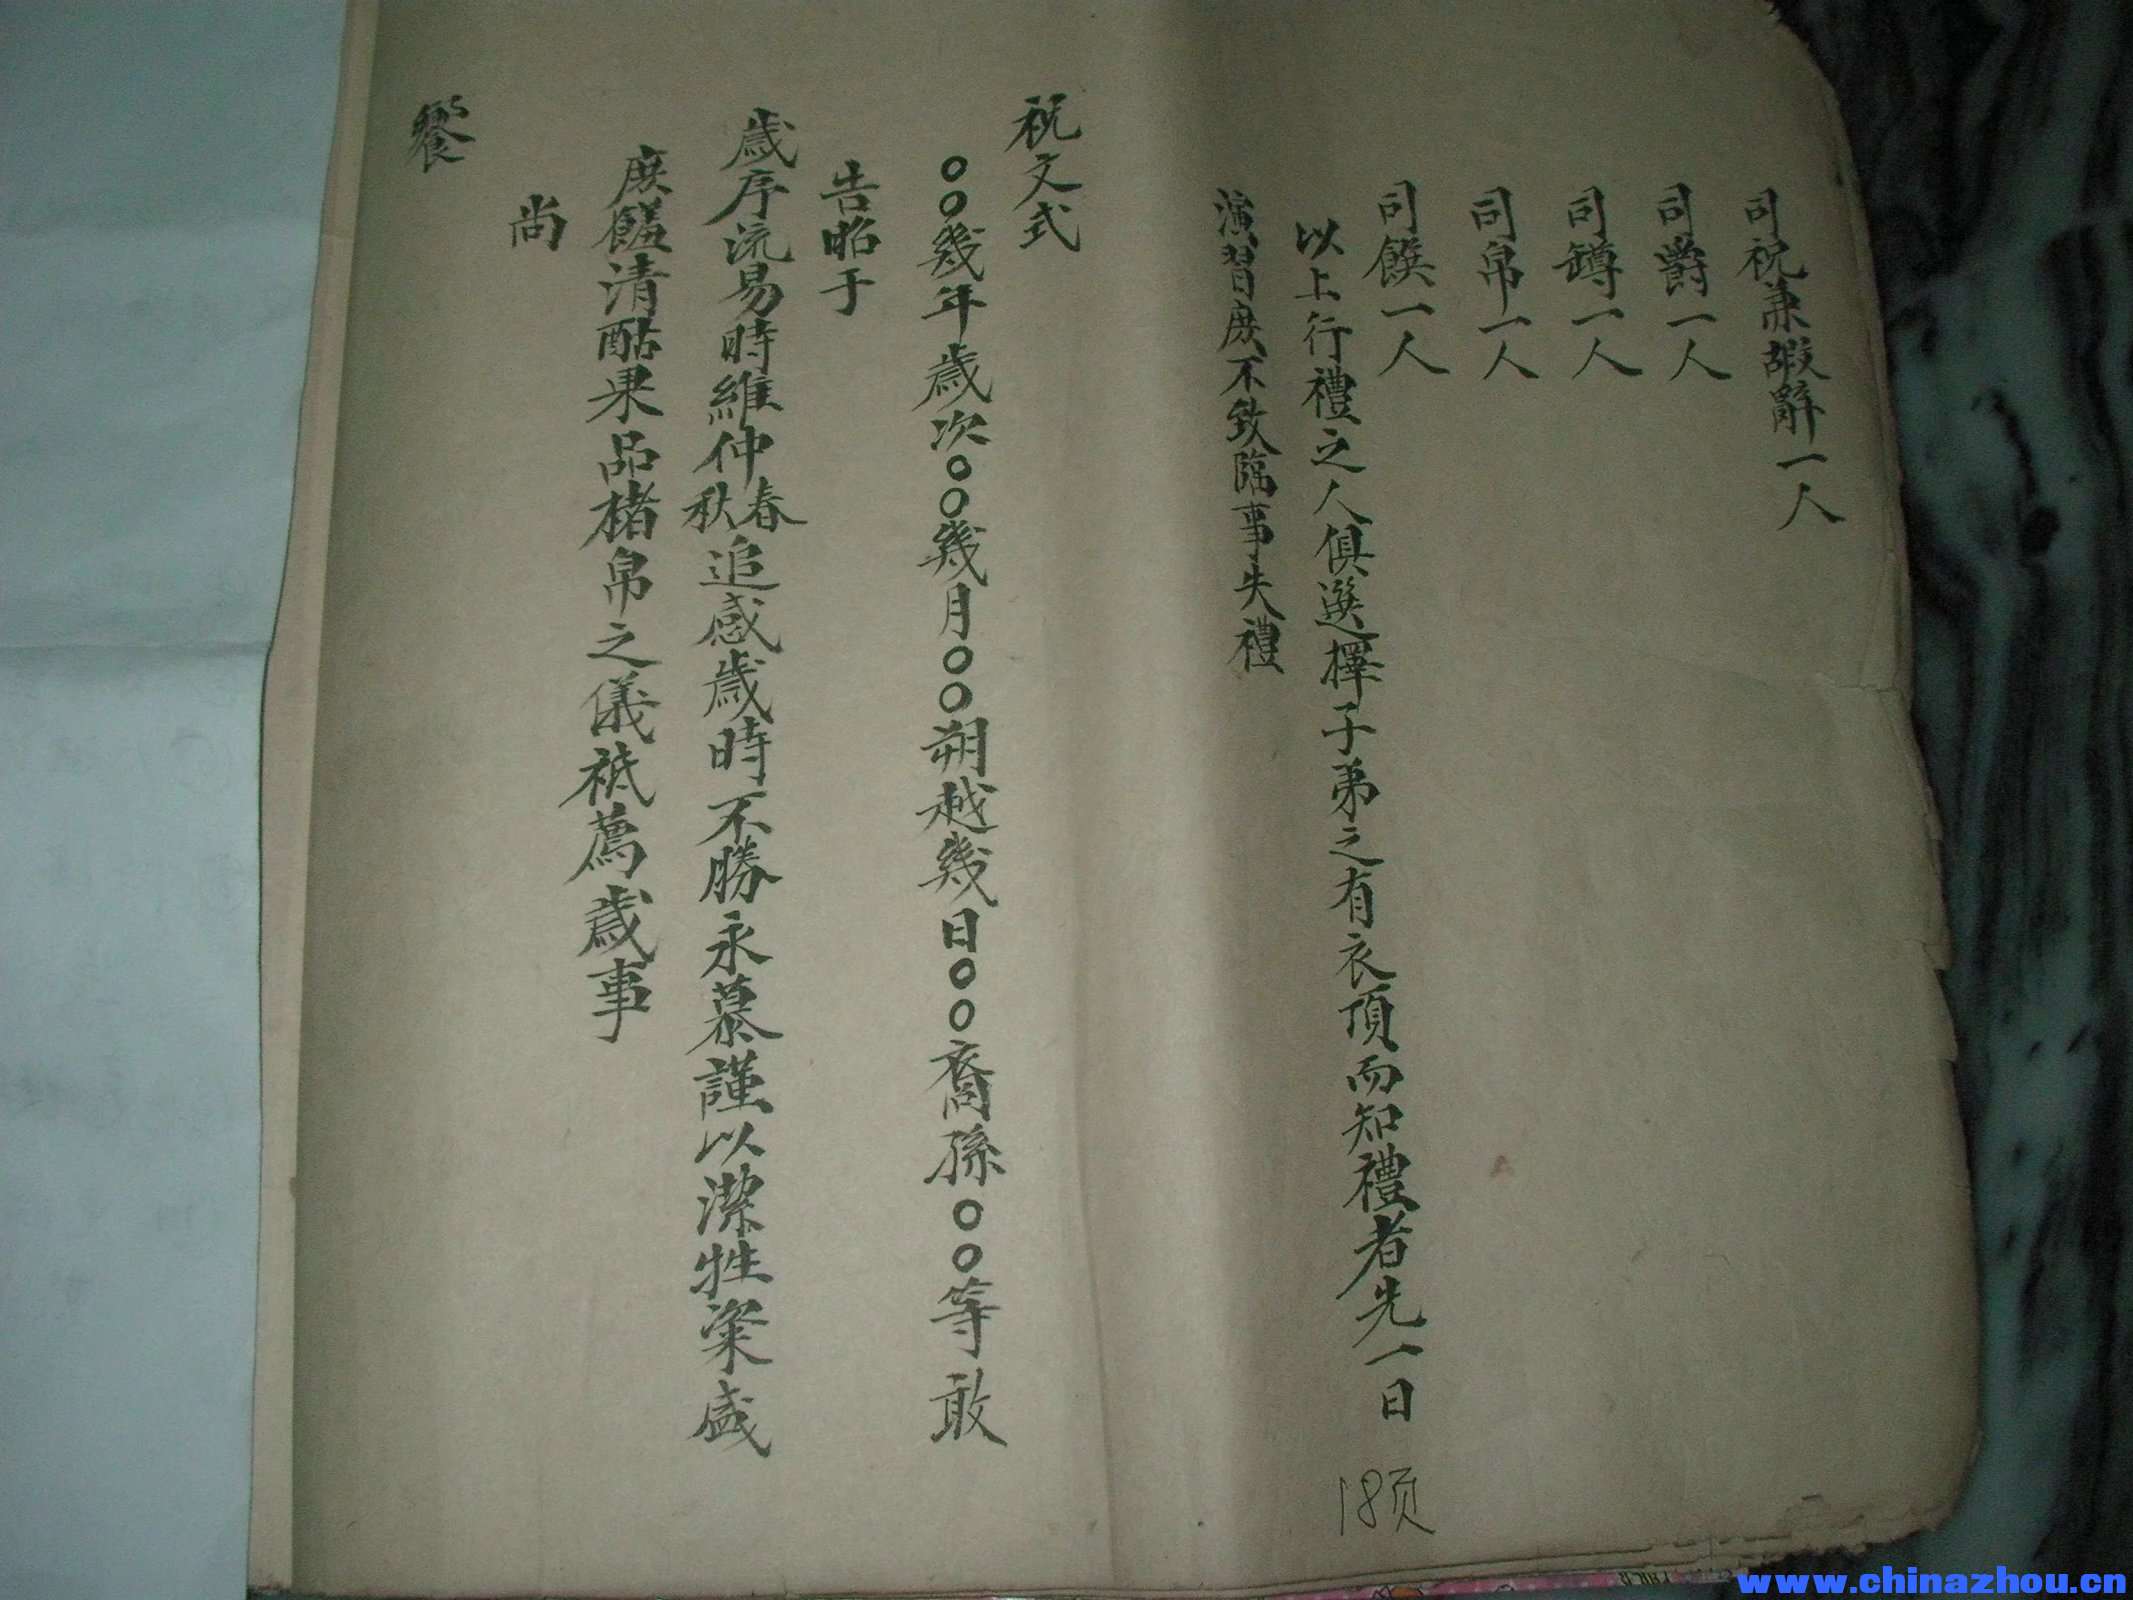 司祝兼嘏辭一人
司爵一人
司罇一人
司帛一人
司饌一人
以上行禮之人俱選擇子弟之有衣頂而知禮者先一日
演習庶不致臨事失禮
祝文式
○○幾年歲次○○幾月○○朔越幾日○○裔孫○○等敢
告昭于
歲序流易時維仲春秋追感歲時不勝永慕謹以潔牲粢盛
庶饈清酤果品楮帛之儀祗薦歲事
尚
饗
18页
www.chinazhou.cn